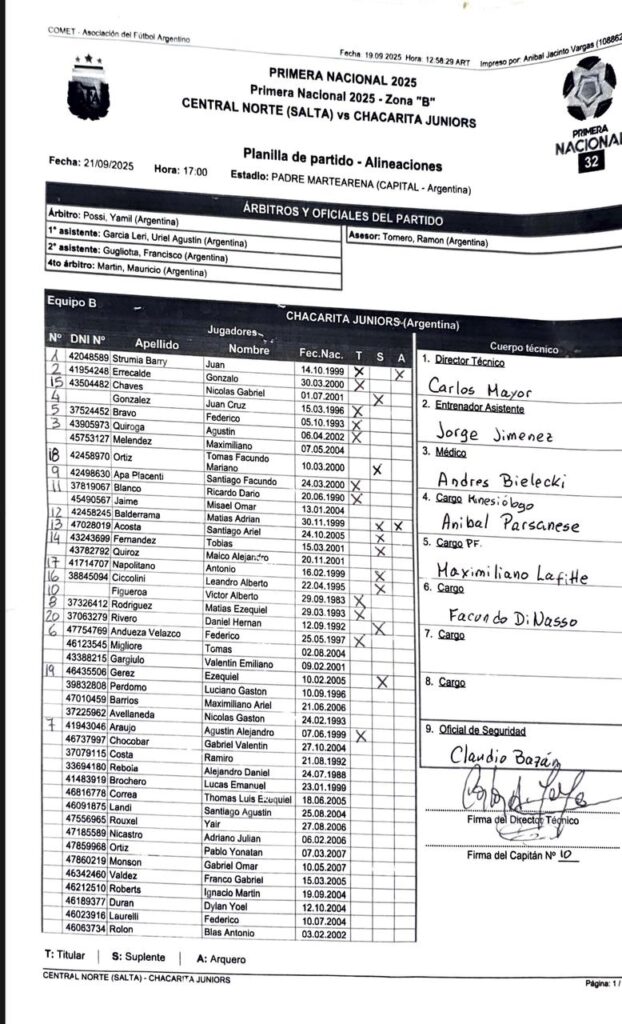 COMET - Asociación del Fútbol Argentino
Fecha 19.09.2025 Hora: 12:58:29 ART Impreso por: Anibal Jacinto Vargas (108862
PRIMERA NACIONAL 2025
Primera Nacional 2025 - Zona "B"
CENTRAL NORTE (SALTA) vs CHACARITA JUNIORS
PRIMERA
NACIONAL
32
Planilla de partido - Alineaciones
Fecha: 21/09/2025 Hora: 17:00 Estadio: PADRE MARTEARENA (CAPITAL - Argentina)
ÁRBITROS Y OFICIALES DEL PARTIDO
Árbitro: Possi, Yamil (Argentina)
Asesor: Tornero, Ramon (Argentina)
1° asistente: Garcia Leri, Uriel Agustin (Argentina)
2° asistente: Gugliotta, Francisco (Argentina)
4to árbitro: Martin, Mauricio (Argentina)
Equipo B CHACARITA JUNIORS (Argentina)
Jugadores
Nº DNI Nº Apellido Nombre Fec.Nac. T S A
1 42048589 Strumia Barry Juan 14.10.1999 X X
2 41954248 Errecalde Gonzalo 30.03.2000 X
15 43504482 Chaves Nicolas Gabriel 01.07.2001 X
4 Gonzalez Juan Cruz 15.03.1996 X
5 37524452 Bravo Federico 05.10.1993 X
3 43905973 Quiroga Agustin 06.04.2002 X
45753127 Melendez Maximiliano 07.05.2004
18 42458970 Ortiz Tomas Facundo Mariano 10.03.2000 X
9 42498630 Apa Placenti Santiago Facundo 24.03.2000 X
11 37819067 Blanco Ricardo Dario 20.06.1990 X
45490567 Jaime Misael Omar 13.01.2004
12 42458245 Balderrama Matias Adrian 30.11.1999 X X
13 47028019 Acosta Santiago Ariel 24.10.2005 X
14 43243699 Fernandez Tobias 15.03.2001 X
43782792 Quiroz Maico Alejandro 20.11.2001
17 41714707 Napolitano Antonio 16.02.1999 X
16 38845094 Ciccolini Leandro Alberto 22.04.1995 X
10 Figueroa Victor Alberto 29.09.1983 X
8 37326412 Rodriguez Matias Ezequiel 29.03.1993 X
20 37063279 Rivero Daniel Hernan 12.09.1992 X
6 47754769 Andueza Velazco Federico 25.05.1997 X
46123545 Migliore Tomas 02.08.2004
43388215 Gargiulo Valentin Emiliano 09.02.2001
19 46435506 Gerez Ezequiel 10.02.2005 X
39832808 Perdomo Luciano Gaston 10.09.1996
47010459 Barrios Maximiliano Ariel 21.06.2006
37225962 Avellaneda Nicolas Gaston 24.02.1993
7 41943046 Araujo Agustin Alejandro 07.06.1999 X
46737997 Chocobar Gabriel Valentin 27.10.2004
37079115 Costa Ramiro 21.08.1992
33694180 Reboia Alejandro Daniel 24.07.1988
41483919 Brochero Lucas Emanuel 23.01.1999
46816778 Correa Thomas Luis Ezequiel 18.06.2005
46091875 Landi Santiago Agustin 25.08.2004
47556965 Rouxel Yair 27.08.2006
47185589 Nicastro Adriano Julian 06.02.2006
47859968 Ortiz Pablo Yonatan 07.03.2007
47860219 Monson Gabriel Omar 10.05.2007
46342460 Valdez Franco Gabriel 15.03.2005
46212510 Roberts Ignacio Martin 19.09.2004
46189377 Duran Dylan Yoel 12.10.2004
46023916 Laurelli Federico 10.07.2004
46063734 Rolon Blas Antonio 03.02.2002
Cuerpo técnico
1. Director Técnico
Carlos Mayor
2. Entrenador Asistente
Jorge Jimenez
3. Médico
Andres Bielecki
4. Cargo Kinesiólogo
Anibal Parsanese
5. Cargo PF.
Maximiliano Lafitte
6. Cargo
Facundo DiNasso
7. Cargo
8. Cargo
9. Oficial de Seguridad
Claudio Bazán
Firma del Director Técnico
Firma del Capitán Nº 10
T: Titular | S: Suplente | A: Arquero
CENTRAL NORTE (SALTA) - CHACARITA JUNIORS
Página: 1 /